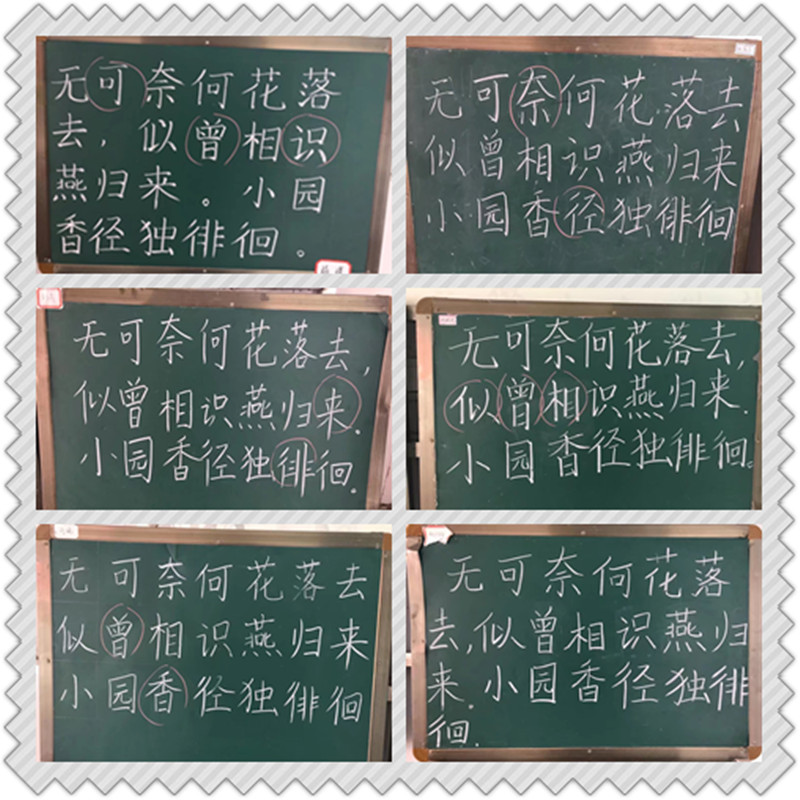 无可奈何花落
去，似曾相识
燕归来。小园
香径独徘徊。
无可奈何花落去
似曾相识燕归来
小园香径独徘徊
无可奈何花落去，
似曾相识燕归来.
小园香径独徘徊。
无可奈何花落去，
似曾相识燕归来.
小园香径独徘徊。
无可奈何花落去
似曾相识燕归来
小园香径独徘徊
无可奈何花落
去,似曾相识燕归
来.小园香径独徘
徊.